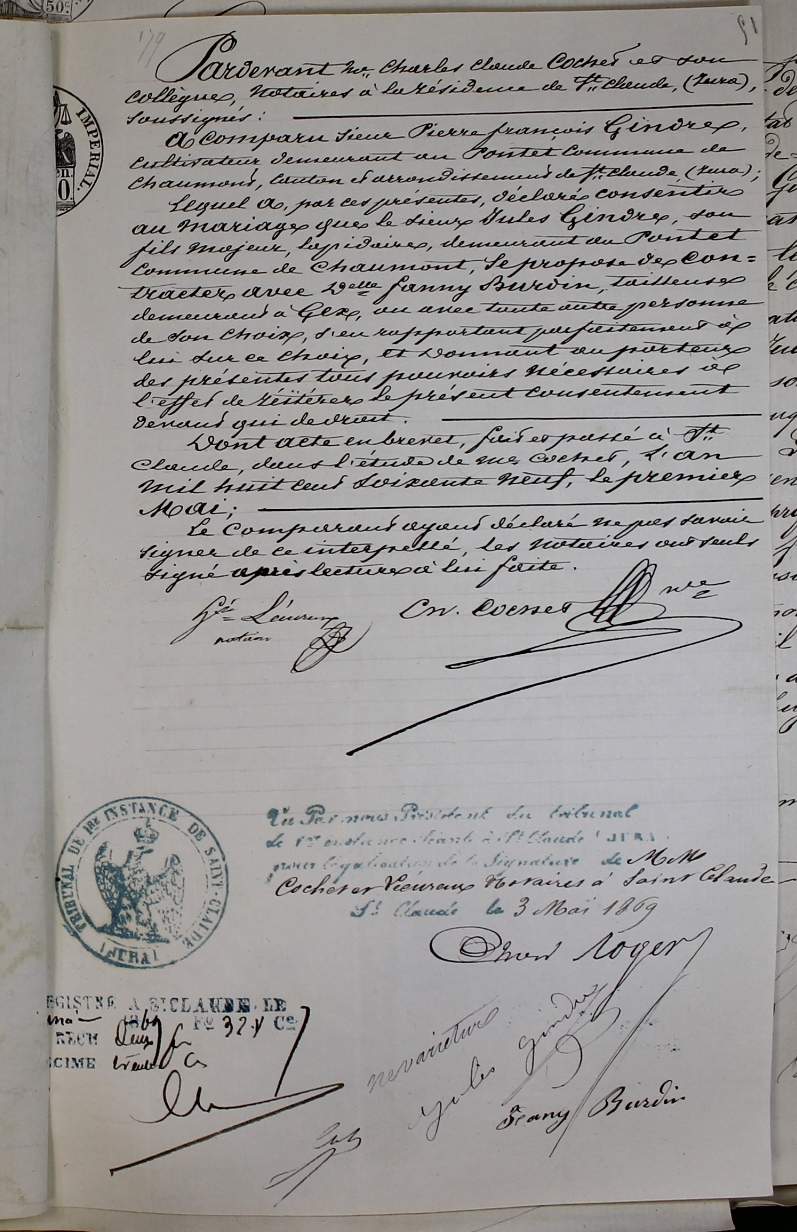 179
51
Pardevant Me. Charles Claude Cochet et son
collègue, Notaires à la résidence de St. Claude, (Jura),
soussignés :
A comparu Sieur Pierre françois Gindre,
cultivateur demeurant au Pontet Commune de
Chaumont, canton et arrondissement de St. Claude, (Jura);
Lequel a, par ces présentes, déclaré consentir
au mariage que le sieur Jules Gindre, son
fils majeur, lapidaire, demeurant au Pontet
Commune de Chaumont, se propose de con=
tracter avec Delle fanny Burdin, tailleuse
demeurant à Gex, ou avec toute autre personne
de son choix, s'en rapportant parfaitement à
lui sur ce choix, et donnant au porteur
des présentes tous pouvoirs nécessaires à
l'effet de réitérer le présent consentement
devant qui de droit.
Dont acte en brevet, fait et passé à St
Claude, dans l'étude de Me Cochet, L'an
mil huit cent soixante neuf, le premier
Mai;
Le comparant ayant déclaré ne pas savoir
signer de ce interpellé, les Notaires ont seuls
signé après lecture à lui faite.
Ch. Cochet nre
notaire
IMPERIAL.
50c
TRIBUNAL DE 1RE INSTANCE DE SAINT-CLAUDE
(JURA)
Vu Par nous Président du tribunal
de 1re instance séant à St Claude (JURA)
pour légalisation de la Signature de MM.
Cochet et Lieuraux Notaires à Saint Claude
St. Claude le 3 Mai 1869
Roger
EGISTRE A ST CLAUDE LE
1869 Fo 32 V Ce
RECU Deux f
CIME trente c
ne varietur
Jules Gindre
Fany Burdin